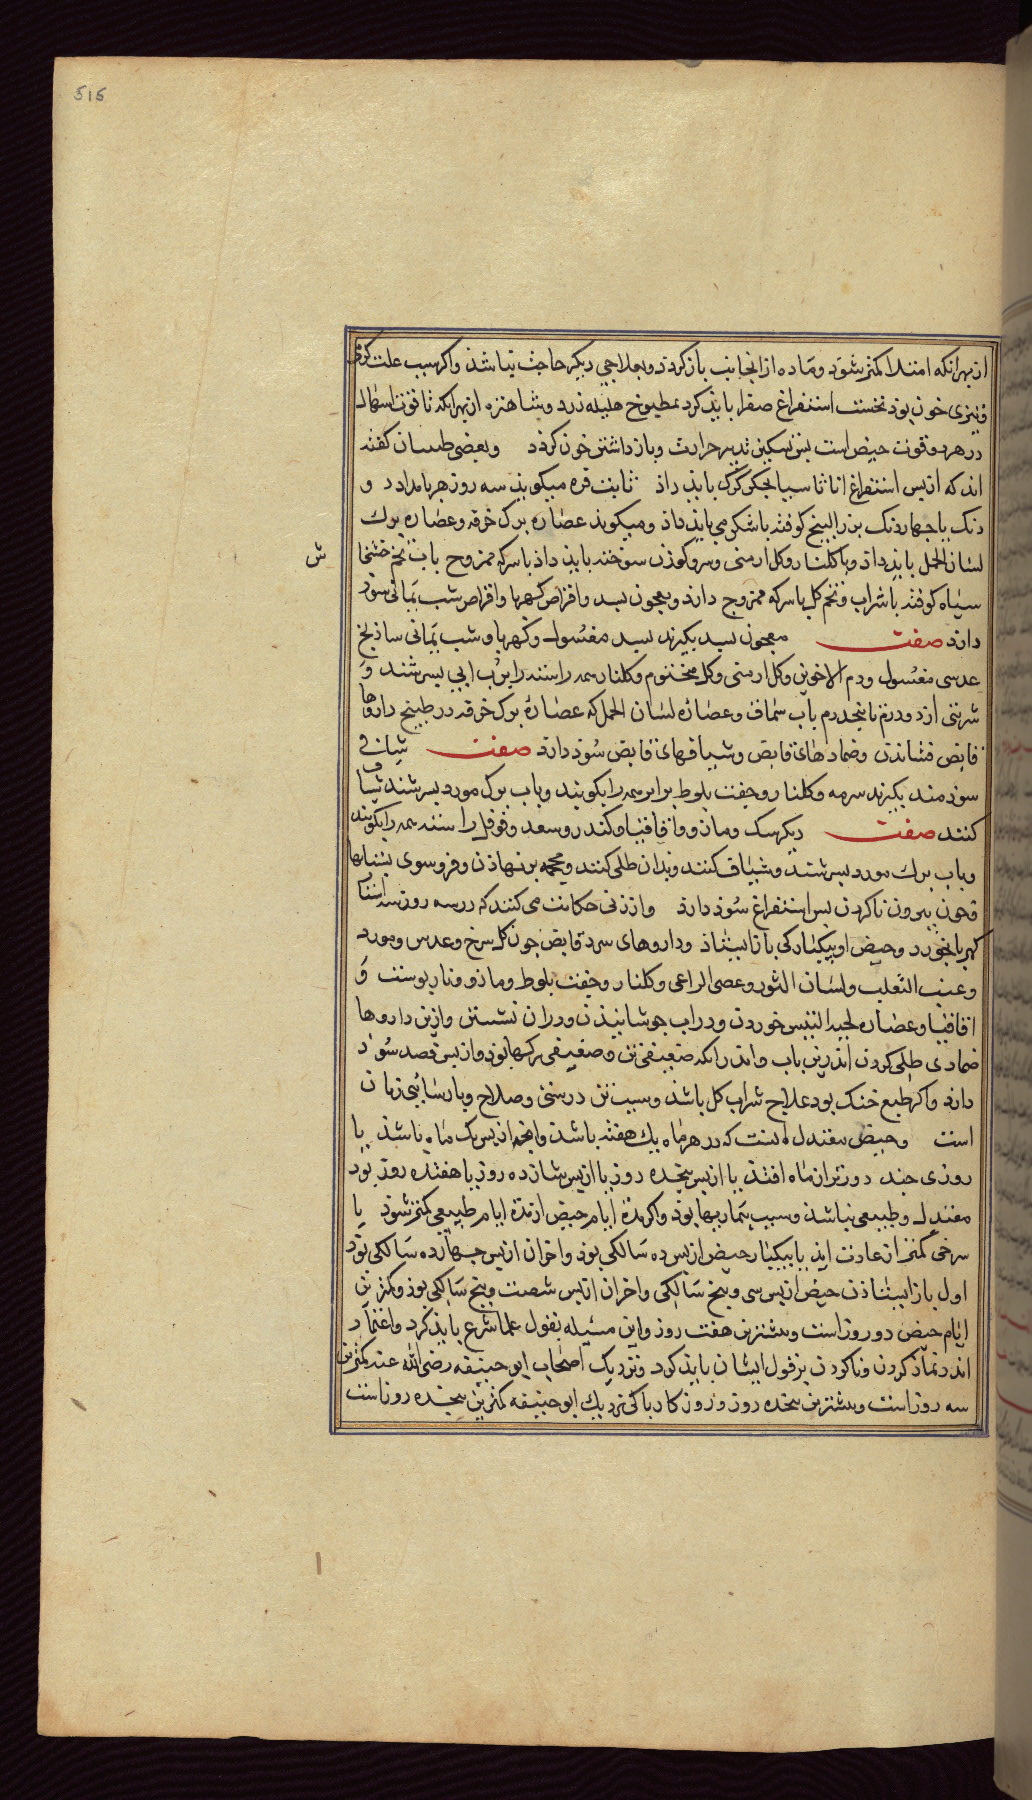 515
از بهر انکه امتلا کمتر شود و ماده از انجانب باز کردد و بعلاجی دیکر حاجت نباشد و اکر سبب علت کرمی
و تیزی خون بود نخست استفراغ صفرا باید کرد بمطبوخ هلیله زرد و شاهتره از بهر انکه تا قوت اسهال
در هر دو قوت حیض است پس تسکین تدبیر حرارت و باز داشتن خون کردد و بعضی طبیبان کفته
اند که از پس استفراغ باید داذ ثابت قره میکوید سه روز هر بامداد دو
دنک یا چهار دنک بزر البنج کوفته با شکر می باید داذ و میکوید عصاره برک خرفه و عصاره برک
لسان الحمل باید داد و با کلنار و کل ارمنی و سرو کوزن سوخته باید داذ با سرکه ممزوج باب تخم خشخا
ش
سیاه کوفته با شراب و تخم کل با سرکه ممزوج دارد و معجون لبد و اقراص کهربا و اقراص شب یمانی سوذ
دارد صفت معجون لبد بکیرند لبد مغسول و کهربا و شب یمانی ساذنج
عدسی مغسول و دم الاخوین و کل ارمنی و کل مختوم و کلنار همه راستند را برب ابی بسرشند و
شربتی از دو درم تا پنجدرم باب سماق و عصاره لسان الحمل که عصاره برک خرفه در طبیخ داروها
قابض نشاندن و ضمادهای قابض و شیافهای قابض سوذ دارد صفت شیافی
سوذمند بکیرند سرمه و کلنار و جفت بلوط برابر همه را بکوبند و باب برک مورد بسرشند شیاف
کنند صفت دیکر سک و مازو و اقاقیا و کندر و سعد و فوفل راستند همه را بکوبند
و باب برک مورد بسرشند و شیاف کنند و بدان طلی کنند و محجمه بر نهادن و فروسوی پستانها
و خون بیرون ناکردن بس استفراغ سوذ دارد و از زنی حکایت می کنند که در سه روز
کهربا بخورد و حیض او بیکبارکی باز ایستاد و داروهای سرد قابض جون کل سرخ و عدس و مورد
و عنب الثعلب و لسان الثور و عصی الراعی و کلنار و جفت بلوط و مازو و نار پوست و
اقاقیا و عصاره لحیة التیس خوردن و در اب جوشانیدن و در ان نشستن و از این داروها
ضمادی طلی کردن اندرین باب و اندر انکه ضعیفی تن و ضعیفی رکها بوذ و از پس فصد سوذ
دارد و اکر طبع خشک بود علاج شراب کل باشد و سبب تن درستی و صلاح و پارسائی زنان
است و حیض معتدل انست که در هر ماه یک هفته باشد و انچه از پس یک ماه باشد یا
روزی چند دورتر از ماه افتد یا از پس پنجده روز یا از پس شانزده روز یا هفتده روز بود
معتدل و طبیعی نباشد و سبب بیماریها بوذ و اکر مدة ایام حیض از مدة ایام طبیعی کمتر شود یا
سرخی کمتر از عادت اید یا بیکبار حیض از پس ده سالکی بوذ و اخران از پس چهارده سالکی بوذ
اول باز ایستاذن حیض از پس سی و پنج سالکی و اخران از پس شصت و پنج سالکی بوذ و کمترین
ایام حیض دو روز است و بیشترین هفت روز و این مسیله بقول علما شرع باید کرد و اعتماد
اندر نماز کردن و ناکردن بر قول ایشان باید کرد و نزدیک اصحاب ابو حنیفه رضی الله عنه کمترین
سه روز است و بیشترین پنجده روز و روزکار پاکی نزدیک ابو حنیفه کمترین پنجده روز است